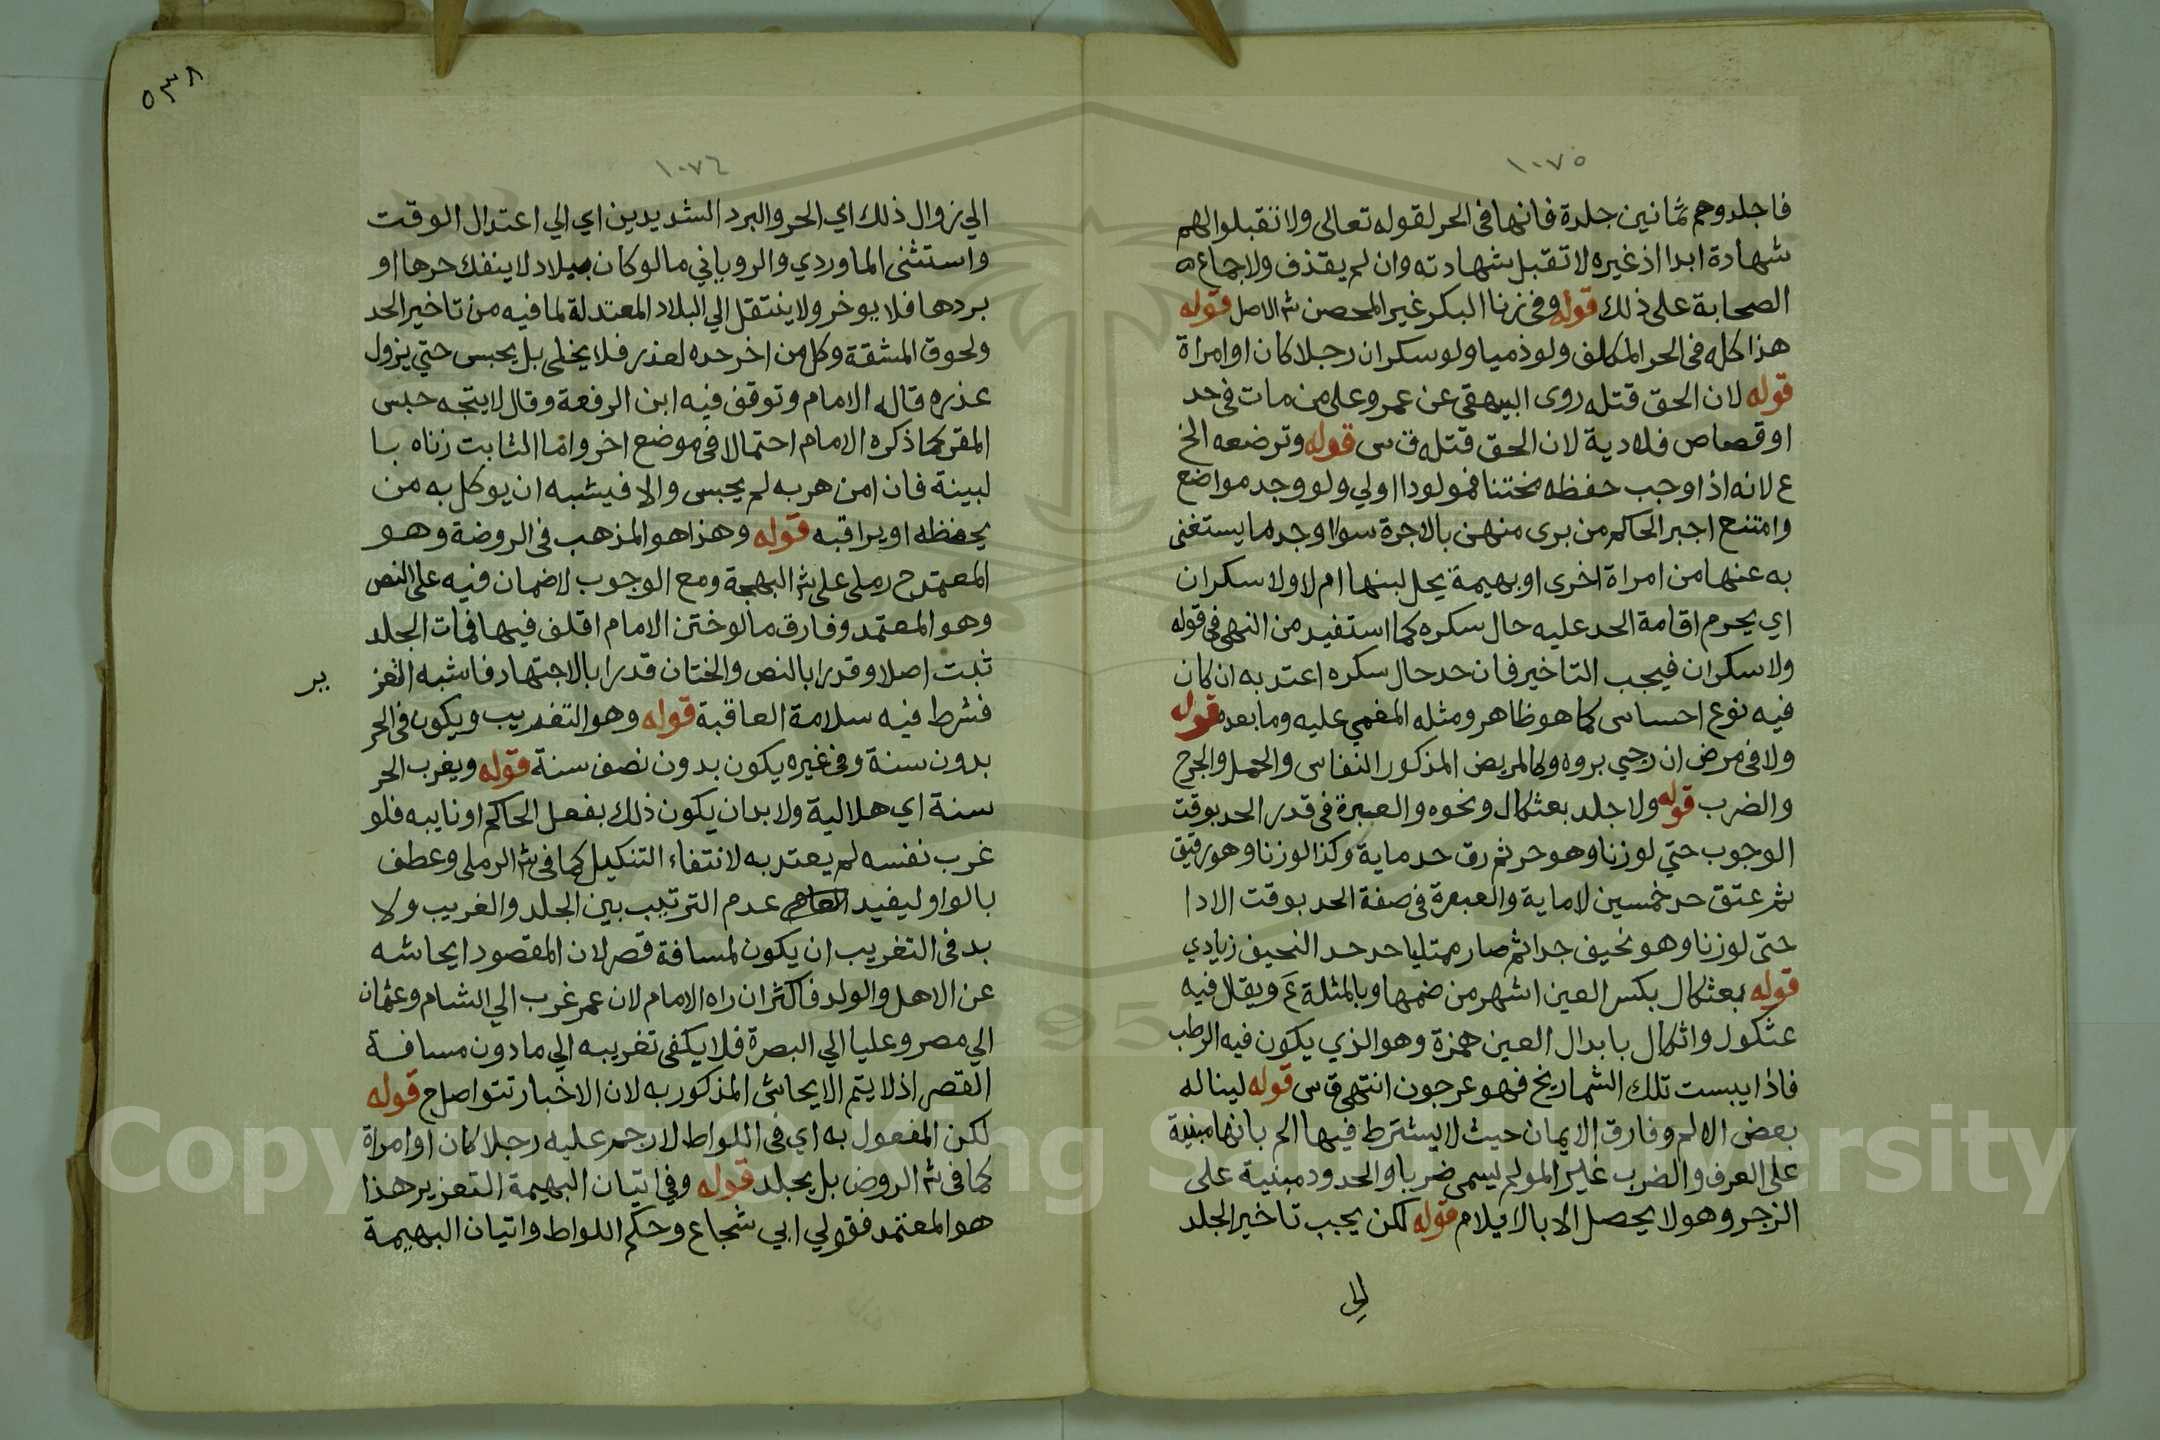 ١٠٧٥
فاجلدوهم ثمانين جلدة فانها فى الحر لقوله تعالى ولا تقبلوا لهم
شهادة ابدا اذ غيره لا تقبل شهادته وان لم يقذف ولاجماع
الصحابة على ذلك قوله وفى زنا البكر غير المحصن ش الاصل قوله
هذا كله فى الحر المكلف ولو ذميا ولو سكران رجلا كان او امراة
قوله لان الحق قتله روى البيهقى عن عمر وعلى من مات فى حد
او قصاص فلا دية لان الحق قتله ق س قوله وترضعه الخ
ع لانه اذا وجب حفظه مختتنا فمولودا اولي ولو وجد مواضع
وامتنع اجبر الحاكم من يرى منهن بالاجرة سوا وجد ما يستغنى
به عنها من امراة اخرى او بهيمة يحل لبنها ام لا ولا سكران
اي يحرم اقامة الحد عليه حال سكره كما استفيد من النهى فى قوله
ولا سكران فيجب التاخير فان حد حال سكره اعتد به ان كان
فيه نوع احساس كما هو ظاهر ومثله المغمي عليه وما بعده قوله
ولا فى مرض ان رجي بروه وكالمريض المذكور النفاس والحمل والجرح
والضرب قوله ولا جلد بعثكال ونحوه والعبرة فى قدر الحد بوقت
الوجوب حتي لو زنا وهو حر ثم رق حد ماية وكذا لو زنا وهو رقيق
ثم عتق حد خمسين لا ماية والعبرة فى صفة الحد بوقت الادا
حتى لو زنا وهو نحيف جدا ثم صار ممتليا حد حد النحيف زيادي
قوله بعثكال بكسر العين اشهر من ضمها وبالمثلة ع ويقال فيه
عثكول واثكال بابدال العين همزة وهو الذي يكون فيه الرطب
فاذا يبست تلك الشماريخ فهو عرجون انتهى ق س قوله ليناله
بعض الالم وفارق الايمان حيث لا يشترط فيها الم بانها مبنية
على العرف والضرب غير المولم يسمى ضربا والحدود مبنية على
الزجر وهو لا يحصل الا بالايلام قوله لكن يجب تاخير الجلد
الي
٥٣٨
١٠٧٦
الي زوال ذلك اي الحر والبرد الشديدين اي الي اعتدال الوقت
واستثنى الماوردي والروياني ما لو كان ببلاد لا ينفك حرها او
بردها فلا يوخر ولا ينتقل الي البلاد المعتدلة لما فيه من تاخير الحد
ولحوق المشقة وكل من اخر حده لعذر فلا يخلى بل يحبس حتي يزول
عذره قاله الامام وتوقف فيه ابن الرفعة وقال لا يتجه حبس
المقر كما ذكره الامام احتمالا فى موضع اخر واما الثابت زناه با
لبينة فان امن هربه لم يحبس والا فيشبه ان يوكل به من
يحفظه او يراقبه قوله وهذا هو المذهب فى الروضة وهو
المعتمد ح رملى على ش البهجة ومع الوجوب لا ضمان فيه على النص
وهو المعتمد وفارق ما لو ختن الامام اقلف فيها فمات الجلد
ثبت اصلا وقدرا بالنص والختان قدرا بالاجتهاد فاشبه التعز
ير
فشرط فيه سلامة العاقبة قوله وهو التغريب ويكون فى الحر
بدون سنة وفى غيره يكون بدون نصف سنة قوله ويغرب الحر
سنة اي هلالية ولا بد ان يكون ذلك بفعل الحاكم او نايبه فلو
غرب نفسه لم يعتد به لانتفاء التنكيل كما فى ش الرملى وعطف
بالواو ليفيد عدم الترتيب بين الجلد والغريب ولا
بد فى التغريب ان يكون لمسافة قصر لان المقصود ايحاشه
عن الاهل والولد فاكثر ان راه الامام لان عمر غرب الي الشام وعثمان
الي مصر وعليا الي البصرة فلا يكفى تغريبه الي ما دون مسافة
القصر اذ لا يتم الايحاش المذكور به لان الاخبار تتواصل ح قوله
لكن المفعول به اي فى اللواط لا رجم عليه رجلا كان او امراة
كما فى ش الروض بل يجلد قوله وفى اتيان البهيمة التعزير هذا
هو المعتمد فقولي ابي شجاع وحكم اللواط واتيان البهيمة
Copyright © King Saud University
1957